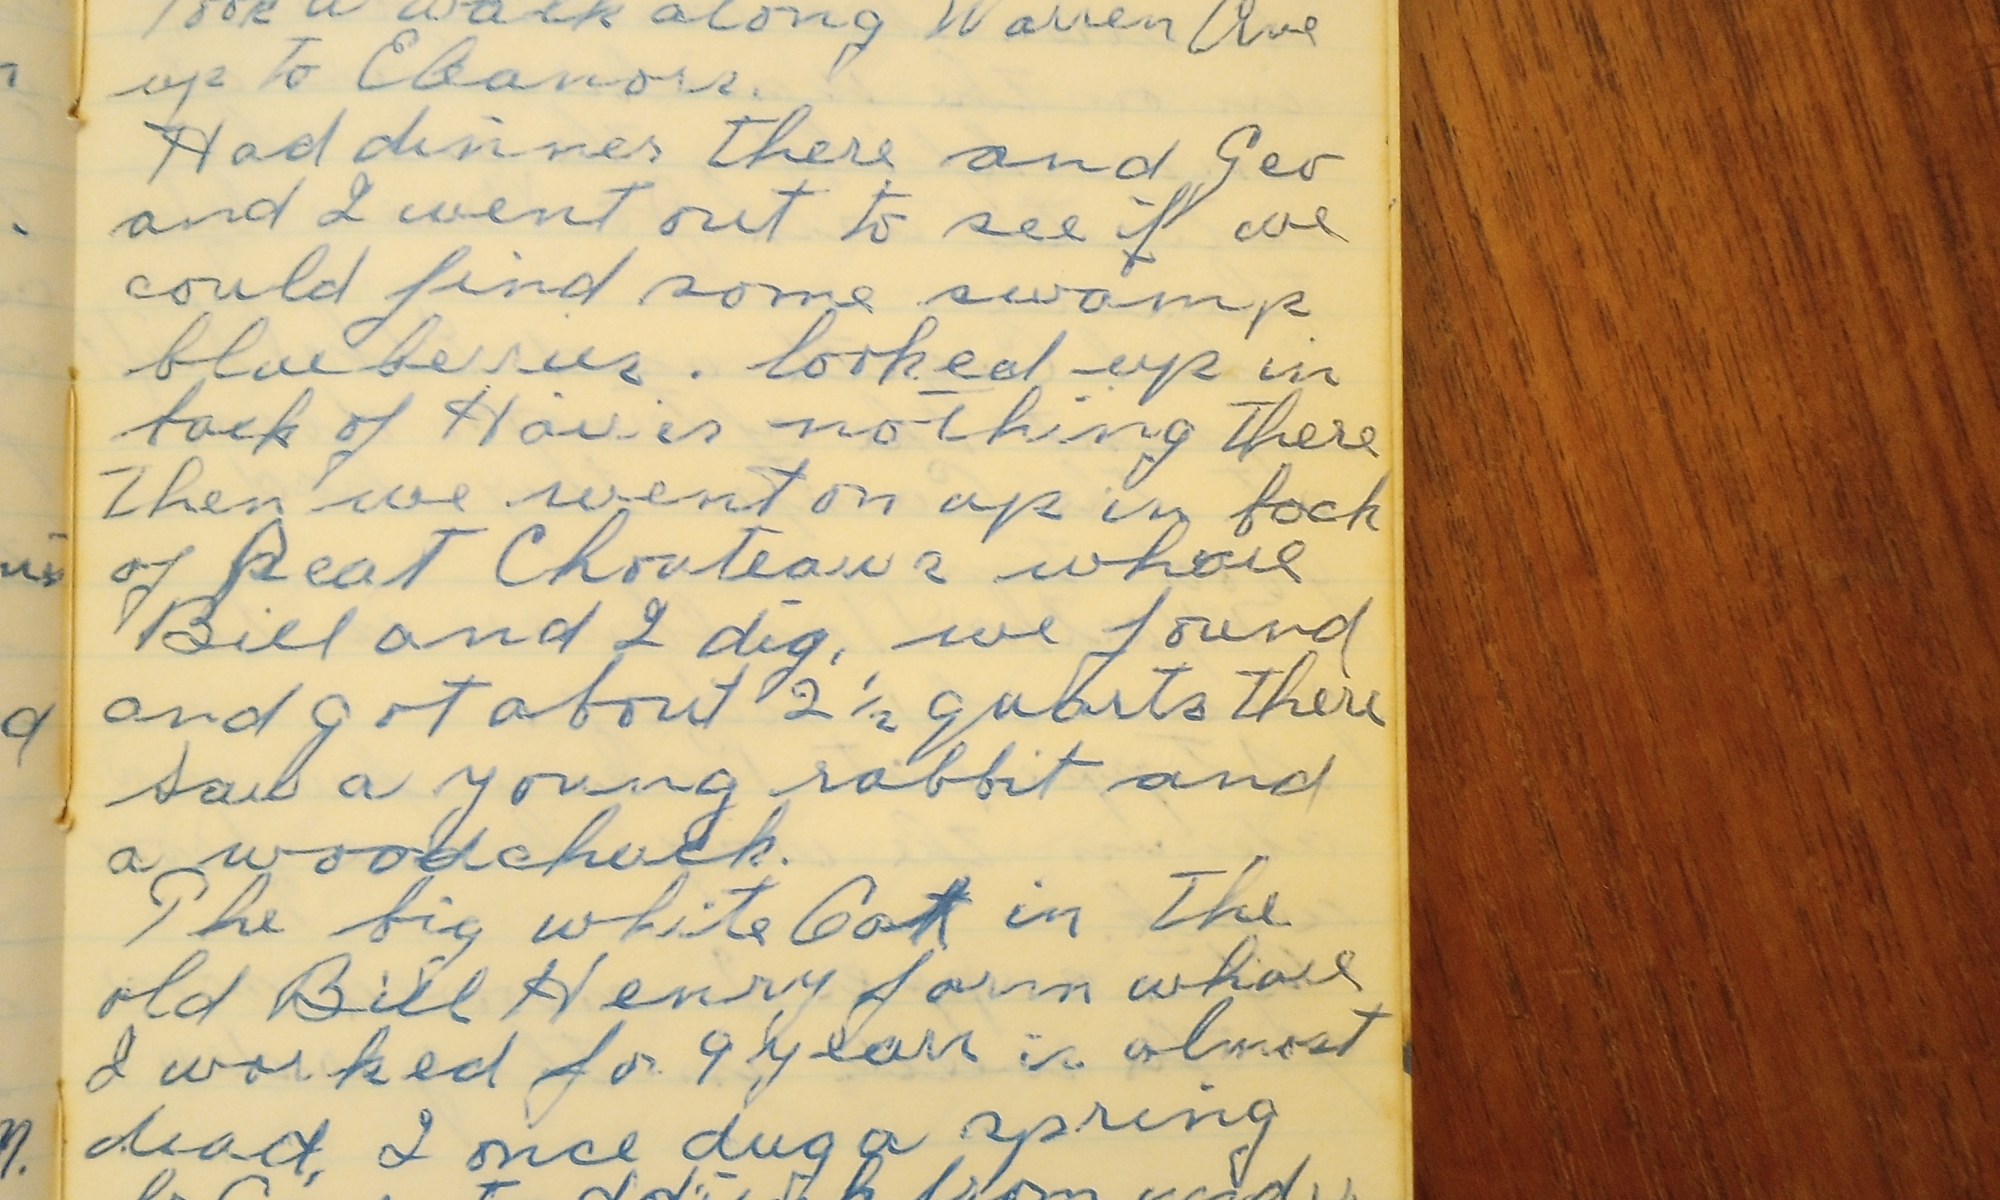 Took a walk along Warren Ave
up to Eleanors.
Had dinner there and Geo
and I went out to see if we
could find some swamp
blueberries. looked up in
back of nothing there
Then we went on up in back
of Chouteaus whare
Bill and I dig, we found
and got about 2 1/2 quarts there
saw a young rabbit and
a woodchuck.
The big white in the
old Bill Henry farm whare
I worked for 9 years is almost
dead, I once dug a spring
from under